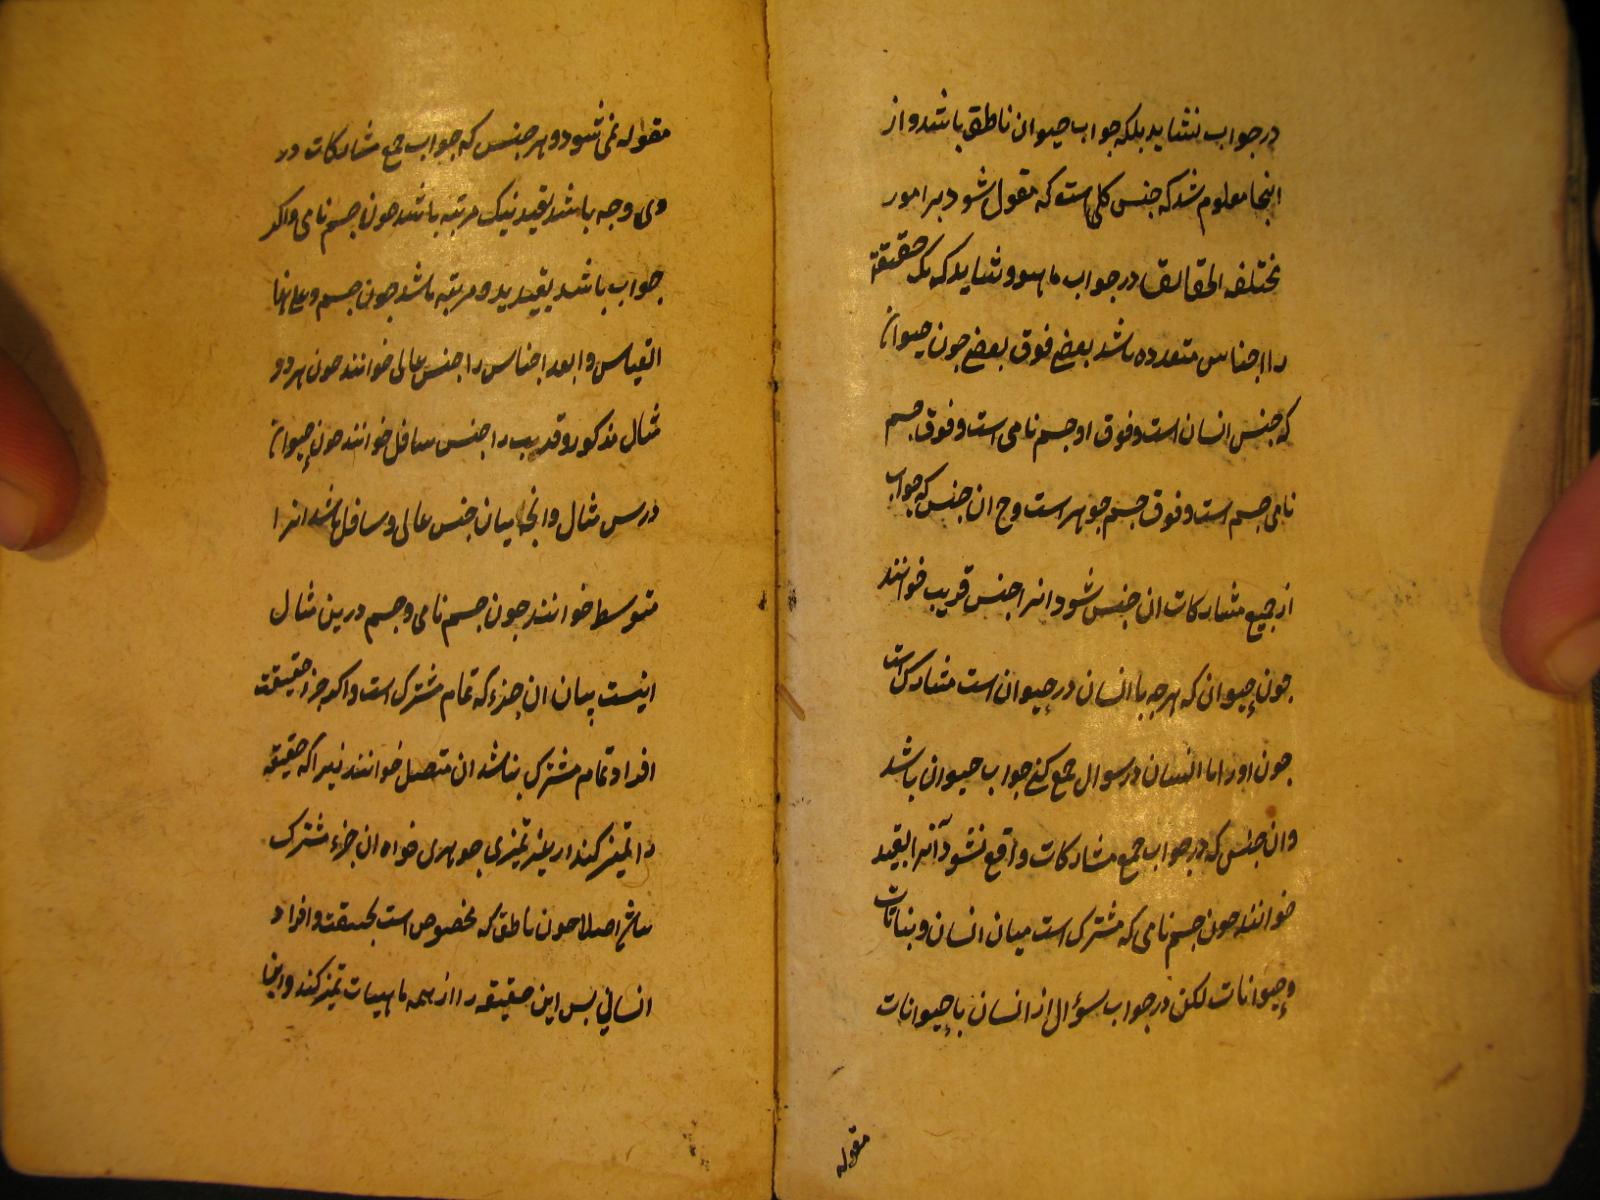 در جواب نشاید بلکه جواب حیوان ناطق باشد و از
اینجا معلوم شد که جنس کلی است که مقول شود بر امور
مختلفه الحقائق در جواب ماهو و شاید که یک حقیقة
را اجناس متعدده باشد بعضی فوق بعضی چون حیوان
که جنس انسان است و فوق او جسم نامی است و فوق جسم
نامی جسم است و فوق جسم جوهر است و ح ان جنس که جواب
از جمیع مشارکات ان جنس شود انرا جنس قریب خوانند
چون حیوانی که هرچه با انسان در حیوان است مشارک است
چون اورا با انسان در سوال جمع کنی جواب حیوان باشد
وان جنس که در جواب جمیع مشارکات واقع نشود آنرا بعید
خوانند چون جسم نامی که مشترک است میان انسان و نباتات
و حیوانات لکن در جواب سؤال از انسان با حیوانات
مقوله
مقوله نمی شود و هر جنس که جواب جمیع مشارکات در
وی وجه باشد بعید بیک مرتبه باشد چون جسم نامی و اکر
جواب باشد بعید بدو مرتبه باشد چون جسم و علی هذا
القیاس و ابعد اجناس را جنس عالی خوانند چون هر دو
مثال مذکور و قریب را جنس سافل خوانند چون حیوان
درس مثال وانچه میان جنس عالی و سافل باشد انرا
متوسط خوانند چون جسم نامی و جسم درین مثال
اینست بیان ان جزء که تمام مشترک است و اکر جزء حقیقت
افراد تمام مشترک نباشد ان متصل خوانند زیرا که حقیقة
را تمیز کند از غیر تمیزی جوهری خواه ان جزء مشترک
نباشد اصلا چون ناطق که مخصوص است بحقیقت و افراد
انسانی بس این حقیقه را از همه ماهیات تمیز کند و این